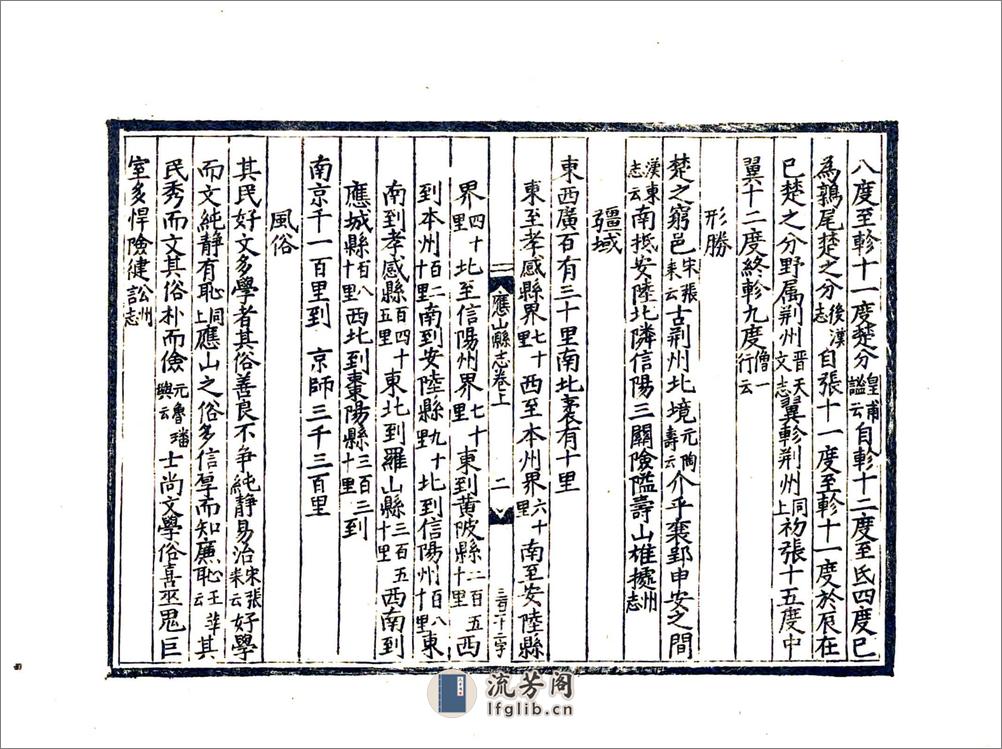 八度至軫十一度楚分皇甫謐云自軫十二度至氐四度已
為鶉尾楚之分後漢志自張十一度至軫十一度於辰在
巳楚之分野属荆州晋天文志翼軫荆州同上初張十五度中
翼十二度終軫九度僧一行云
形勝
楚之窮邑宋張耒云古荆州北境元陶壽云介乎棗郢申安之間
漢東志云南抵安陸北隣信陽三關險隘壽山雄㨿州志
疆域
東西廣百有三十里南北袤有十里
東至孝感縣界七十里西至本州界六十里南至安陸縣
界四十里北至信陽州界七十里東到黄陂縣二百五十里西
到本州百二十里南到安陸縣九十里北到信陽州百八十里東
南到孝感縣百四十五里東北到羅山縣三百五十里西南到
應城縣百八十里西北到棗陽縣三百三十里到
南京千一百里到 京師三千三百里
風俗
其民好文多學者其俗善良不争純静易治宋張耒云好學
而文純静有恥同上應山之俗多信厚而知廉恥王萃云其
民秀而文其俗朴而儉元魯璠興云士尚文學俗喜巫鬼巨
室多悍險健訟州志
應山縣志卷上
二
三百二十二字
流芳阁
lfglib.cn